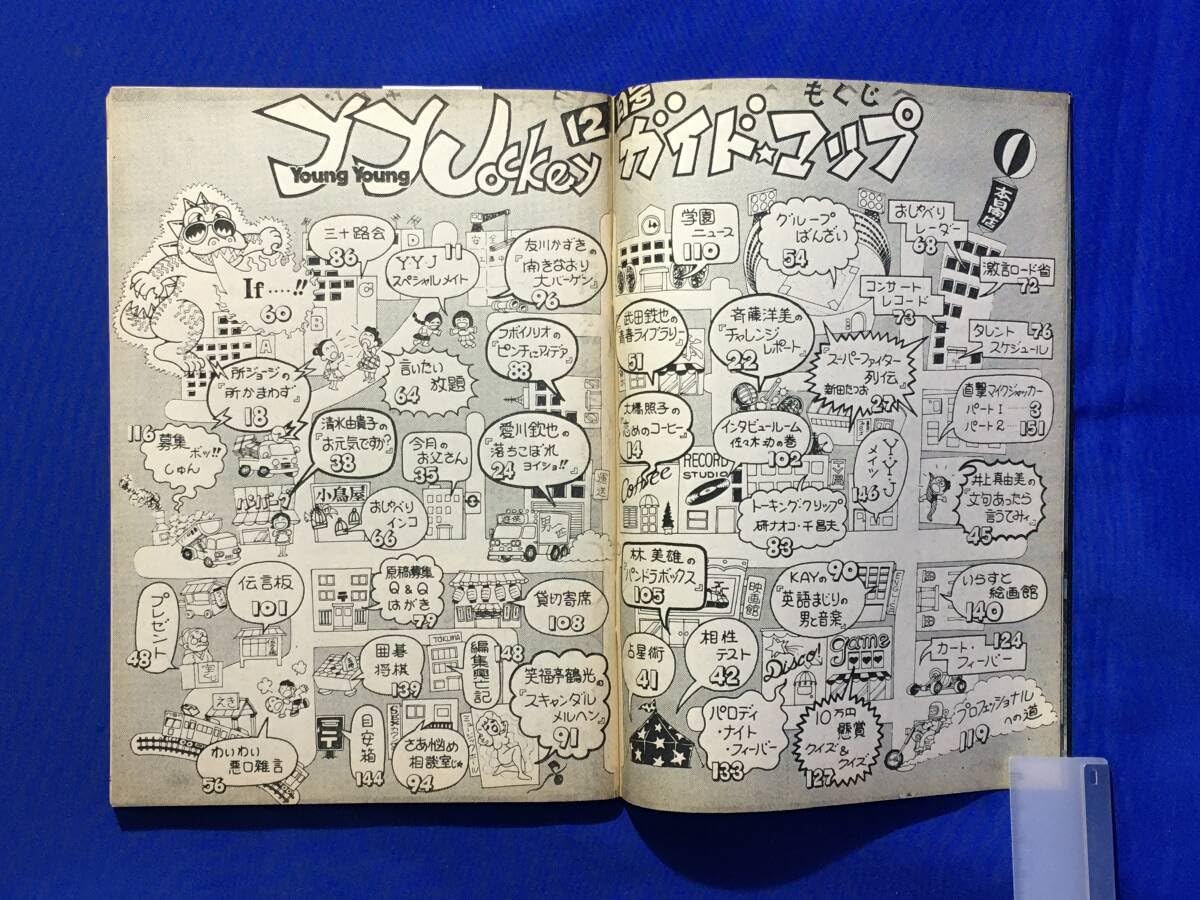 YY Jockey
Young Young
12
もくじ
ガイド☆マップ
本日開店
三十路会
86
If……!!
60
Y・Y・J
スペシャルメイト
11
友川かずきの
『開きなおり
大バーゲン』
96
所ジョージの
『所かまわず』
18
言いたい
放題
64
つボイノリオの
『ピンチにアイデア』
88
116
募集
ボッ!!
しゅん
清水由貴子の
『お元気ですか?』
38
今月の
お父さん
35
愛川欽也の
『落ちこぼれ
ヨイショ!!』
24
運送
ハンバーグ
小鳥屋
おしゃべり
インコ
66
プレゼント
48
伝言板
101
原稿募集
Q&Q
はがき
79
貸切寄席
108
囲碁
将棋
139
TOKUMA
編集興亡記
148
笑福亭鶴光の
『スキャンダル
メルヘン』
91
えき
わいわい
悪口雑言
56
目安箱
144
さあ悩め
相談室じゃ
94
学園
ニュース
110
グループ
ばんざい
54
おしゃべり
レーダー
68
激言ロード省
72
コンサート
レコード
73
タレント
スケジュール
76
武田鉄也の
『青春ライブラリー』
51
斉藤洋美の
『チャレンジ
レポート』
22
『スーパーファイター
列伝』
新田たつお
27
直撃マイクジャッカー
パート1……3
パート2……151
大橋照子の
『恋めのコーヒー』
14
インタビュールーム
佐々木功の巻
102
Y・Y・J
メイツ
146
井上真由美の
『文句あったら
言うてみィ』
45
Coffee
RECORD
STUDIO
トーキング・クリップ
研ナオコ・千昌夫
83
林美雄の
『パンドラボックス』
105
映画館
KAYの
『英語まじりの
男と音楽』
90
いらすと
絵画館
140
占星術
41
相性
テスト
42
Disco!
game
カート・
フィーバー
124
パロディ
・ナイト
・フィーバー
133
10万円
懸賞
クイズ&
クイズ
127
プロフェッショナル
への道
119